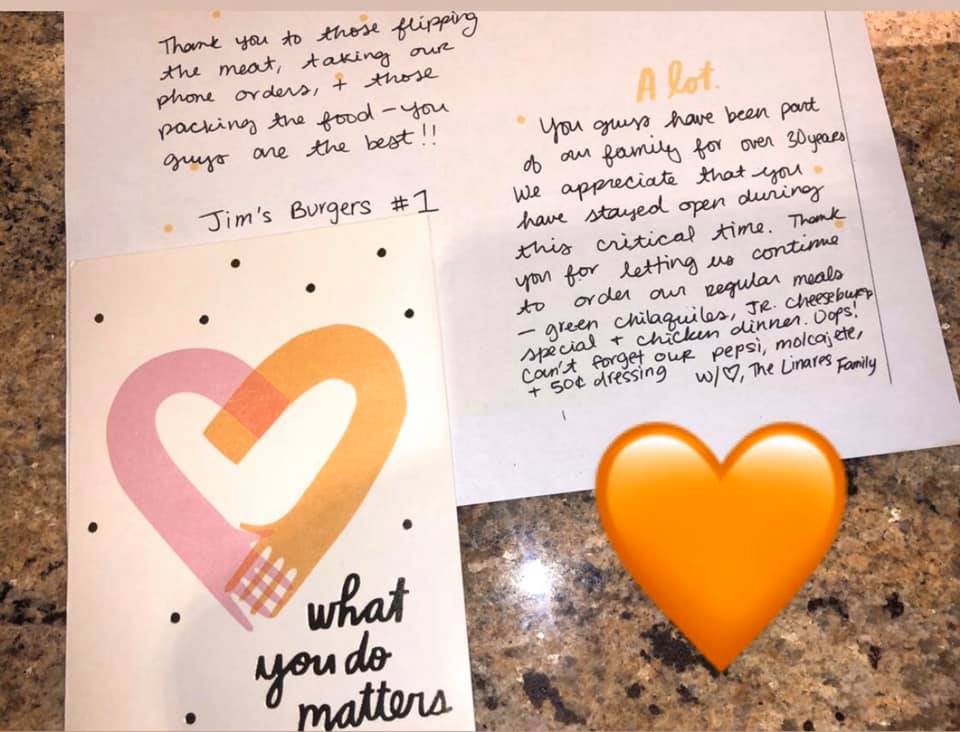 Thank you to those flipping
the meat, taking our
phone orders, + those
packing the food - you
guys are the best!!
Jim's Burgers #1
A lot.
You guys have been part
of our family for over 30 years
We appreciate that you
have stayed open during
this critical time. Thank
you for letting us continue
to order our regular meals
- green chilaquiles, JR. cheeseburger
special + chicken dinner. Oops!
Can't forget our pepsi, molcajete,
+ 50¢ dressing
w/♡, The Linares Family
what
you do
matters